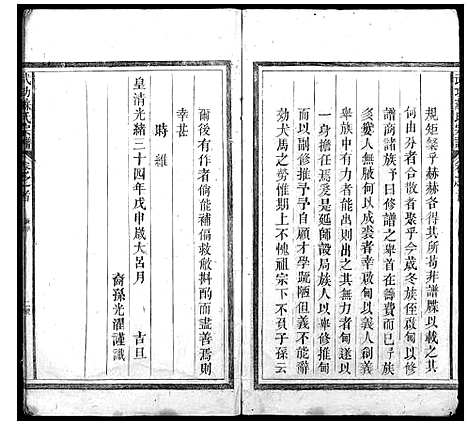 規矩縏乎赫赫各得其所苟非譜牒以載之其
何由分者合散者聚乎今歲冬族侄啟甸以修
譜商諸族予曰修譜之舉首在籌費而已乎族
多愛人無腋何以成裘者幸啟甸以義人創義
舉族中有力者能出則出其無力者甸遂以
一身擔任焉爰是延師設局族人以卑修推甸
而以副修推予予自顧才學疏陋但義不能辭
効犬馬之勞惟期上不愧祖宗下不負子孫云
爾後有作者倘能補偏救敝斟酌而盡善焉則
幸甚
時維
皇清光緒三十四年戊申歲大呂月 吉旦
裔孫光濯謹識
武功蘇氏宗譜
卷之首